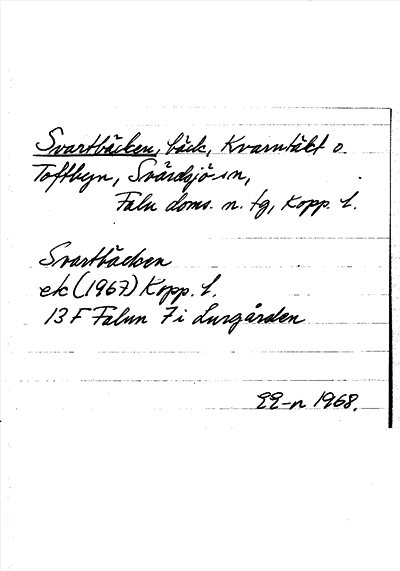 Svartbäcken, bäck, Kvarntäkt o.
Toftbyn, Svärdsjö sn,
Falu doms. n. tg, Kopp. l.
Svartbäcken
ek (1967) Kopp. l.
13 F Falun 7 i Lurgården
1968.